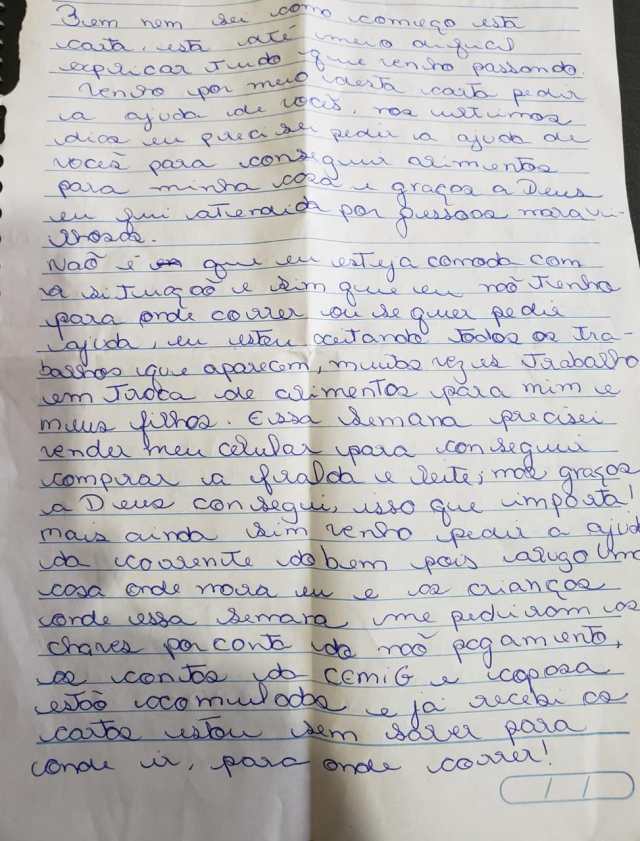 Bem nem sei como começo esta
carta, esta até meio dificil
explicar tudo que venho passando.
Venho por meio desta carta pedir
a ajuda de vocês, nos ultimos
dias eu precisei pedir a ajuda de
vocês para conseguir alimentos
para minha casa e graças a Deus
eu fui atendida por pessoas maravi-
lhosas.
Naõ é que eu esteja comoda com
a situaçaõ e sim que eu naõ tenho
para onde correr ou se quer pedir
ajuda, eu estou aceitando todos os tra-
balhos que aparecem, muitas vezes trabalho
em troca de alimentos para mim e
meus filhos. Essa semana precisei
vender meu celular para conseguir
comprar a fralda e leite, mas graças
a Deus consegui, isso que importa!
mais ainda sim venho pedir a ajud
da corrente do bem pois alugo uma
casa onde mora eu e as crianças
onde essa semana me pediram as
chaves por conta do naõ pagamento,
as contas da CEMIG e copasa
estaõ acomuladas e já recebi as
cartas estou sem saber para
onde ir, para onde correr!